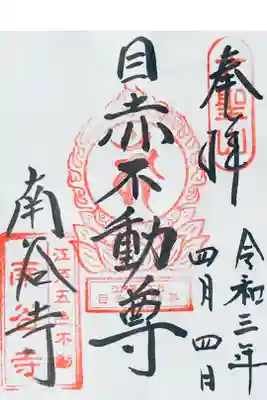 奉拝
令和三年
四月四日
目赤不動尊
南谷寺
江戸五色不動
南谷寺